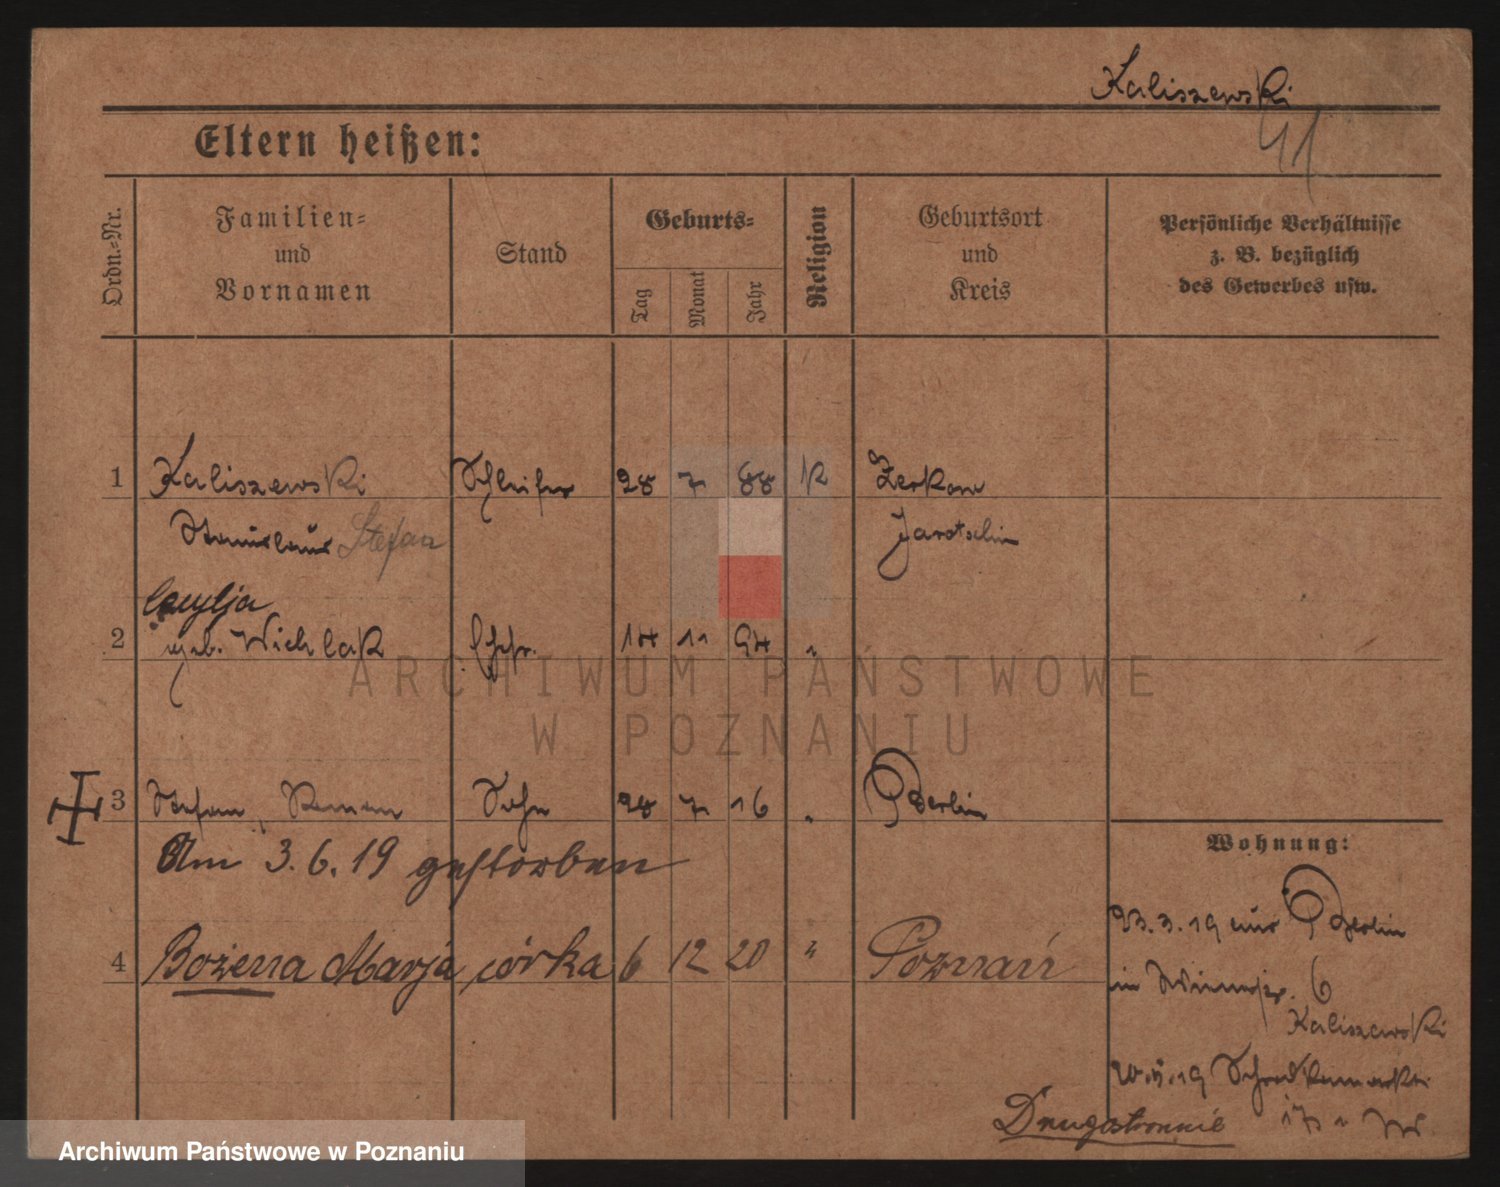 Kaliszewski
41
Eltern heißen:
Ordn.=Nr.
Familien=
und
Vornamen
Stand
Geburts=
Tag
Monat
Jahr
Religion
Geburtsort
und
Kreis
Persönliche Verhältnisse
z. B. bezüglich
des Gewerbes usw.
1 Kaliszewski Schleifer 28 7 88 K Zerkow
Stanislaus Stefan Jarotschin
Cecylja
2 geb. Wichlak Ehefr. 14 11 94 "
ARCHIWUM PAŃSTWOWE
W POZNANIU
3 Stefan, Roman Sohn 28 7 16 " Berlin
Am 3.6.19 gestorben
Wohnung:
23.3.19 aus Berlin
4 Bożena Marja córka 6 12 20 " Poznań
in 6
Kaliszewski
19
Drugostronnie 17
Archiwum Państwowe w Poznaniu